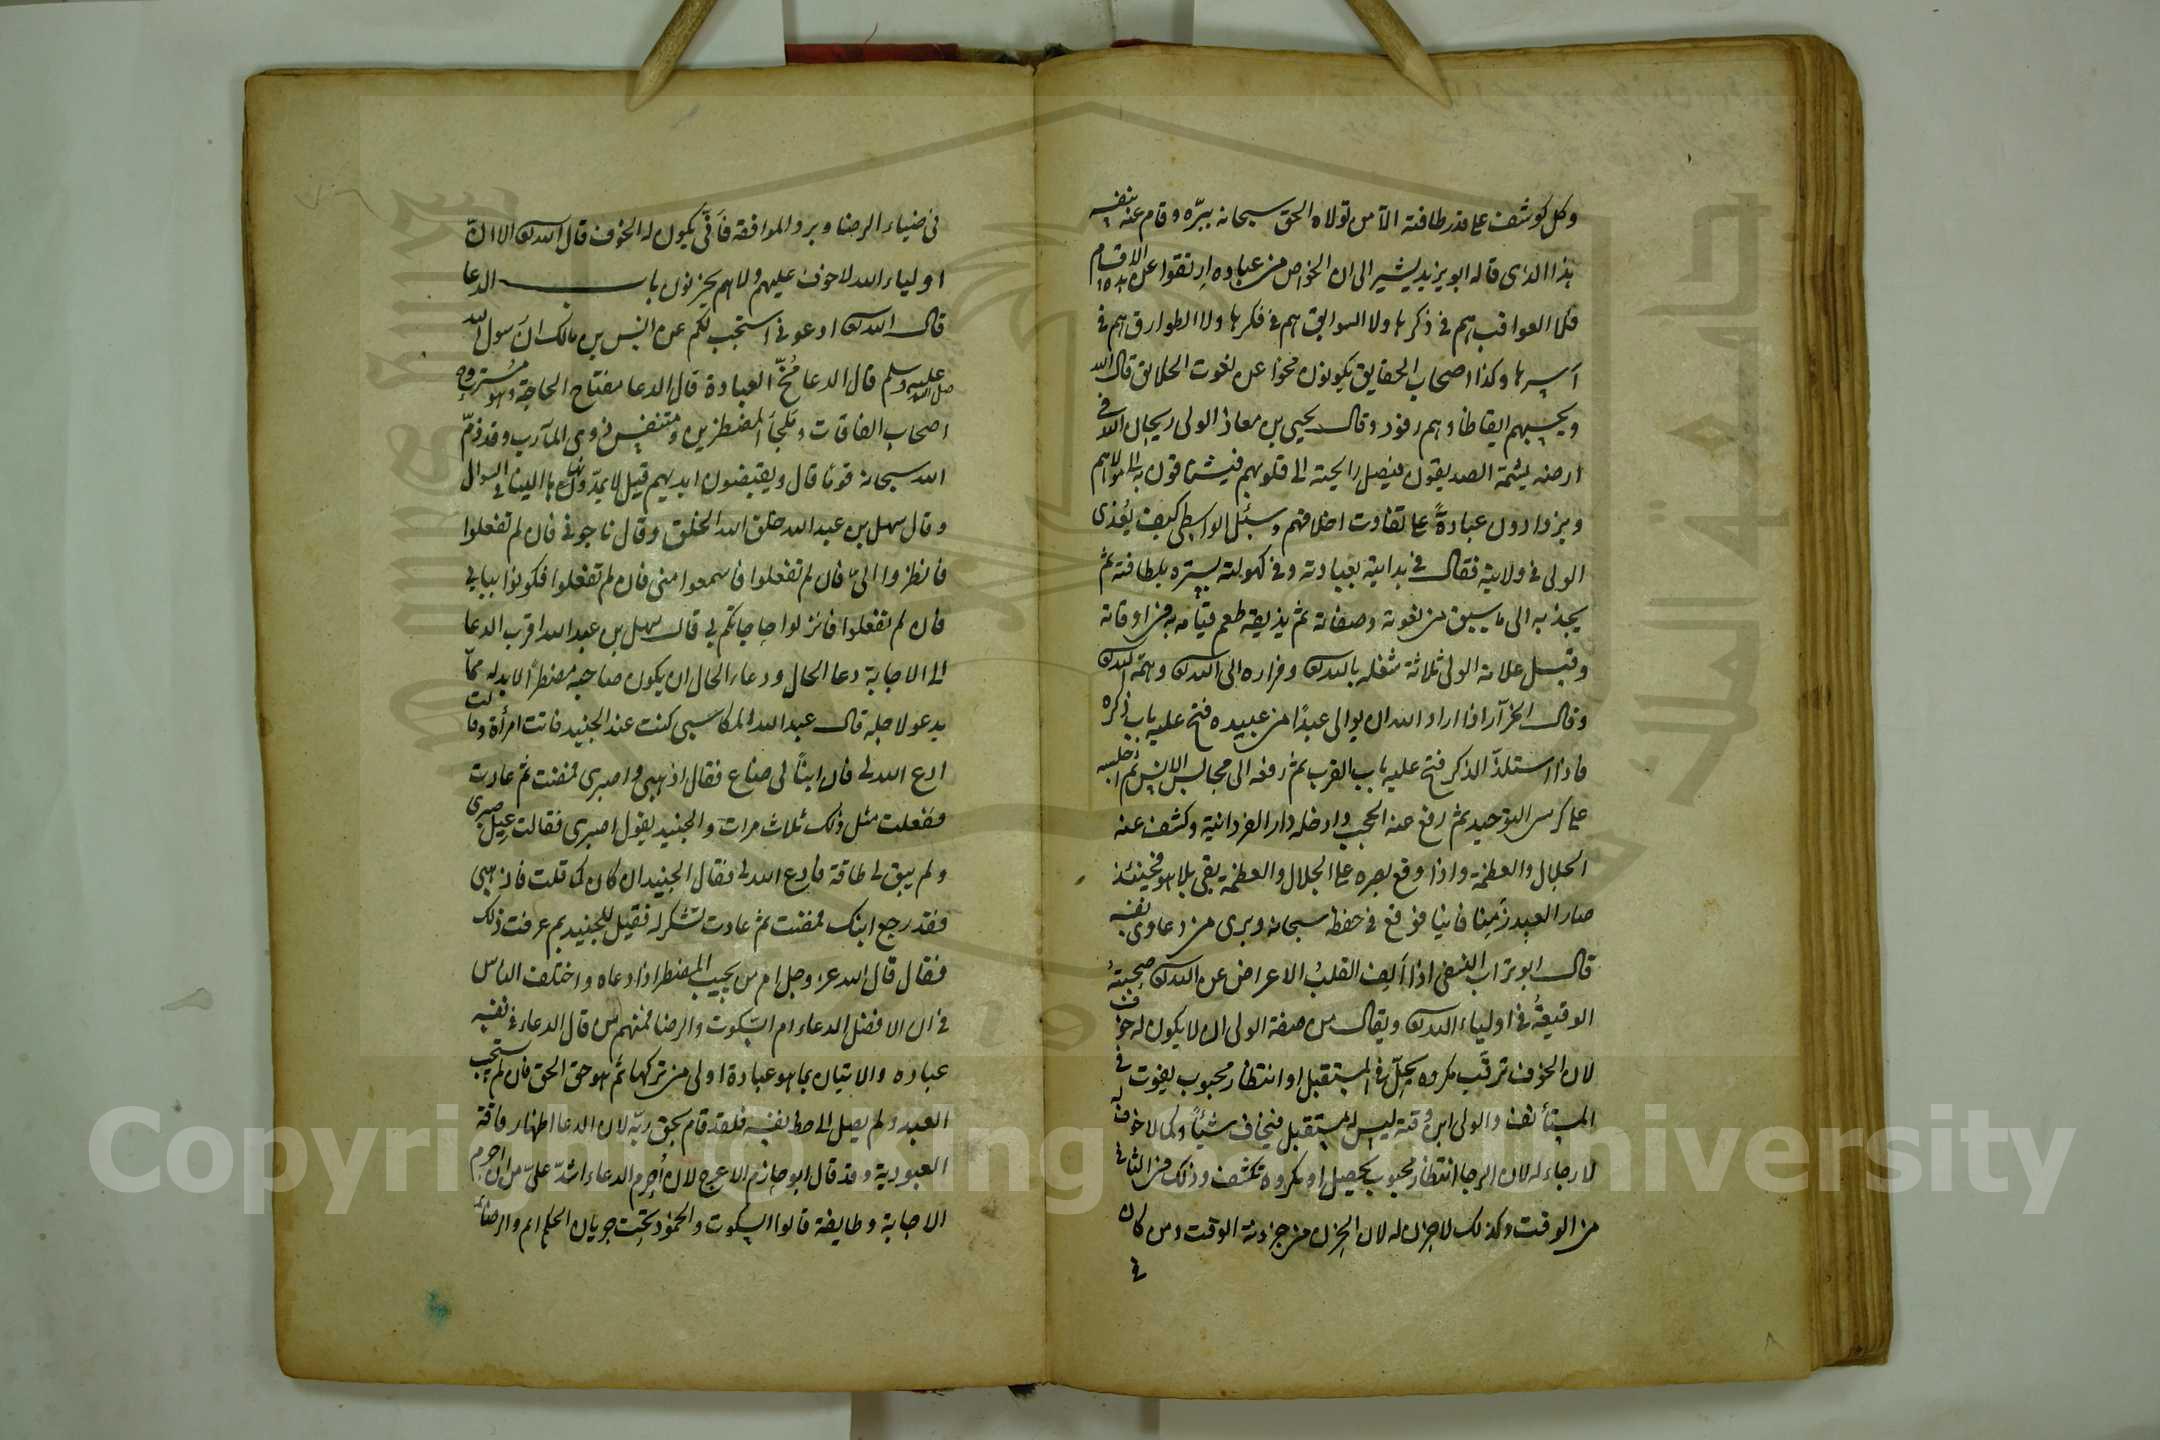 وكل كوشف على قدر طاقته الا من تولاه الحق سبحانه ببره وقام عنه بنفسه
هذا الذى قاله ابو يزيد يشير الى ان الخواص من عباده ارتقوا عن الاقسام
فلا العواقب هم فى ذكرها ولا السوابق هم فى فكرها ولا الطوارق هم فى
اسرها وكذا اصحاب الحقايق يكونون محوا عن نعوت الخلايق قال الله
ويحسبهم ايقاظا وهم رقود وقال يحيى بن معاذ الولى ريحان الله فى
ارضه يشمه الصديقون فيصل رايحته الى قلوبهم فيشتاقون به الى مولاهم
ويزدادون عبادةً على تفاوت اخلاقهم وسئل الواسطى كيف يُغذى
الولى فى ولايته فقال فى بدايته بعبادته وفى كهولته بستره بلطافته ثم
يجذبه الى ما سبق من نعوته وصفاته ثم يذيقه طعم قيامه به فى اوقاته
وقيل علامة الولى ثلاثة شغله بالله وفراره الى الله وهمه الله
وقال الخراز اذا اراد الله ان يوالى عبدًا من عبيده فتح عليه باب ذكره
فاذا استلذّ الذكر فتح عليه باب القرب ثم رفعه الى مجالس الانس ثم اجلسه
على كرسى التوحيد ثم رفع عنه الحجب وادخله دار الفردانية وكشف عنه
الجلال والعظمة واذا وقع بصره على الجلال والعظمة بقى بلا هو فحينئذ
صار العبد زمِنا فانيا فوقع فى حفظه سبحانه وبرى من دعاوى نفسه
قال ابو تراب النخشبى اذا اَلِف القلبُ الاعراض عن الله صحبتهُ
الوقيعةُ فى اولياء الله ويقال من صفة الولى ان لا يكون له خوف
لان الخوف ترقّب مكروه يحلّ فى المستقبل او انتظار محبوب يفوت فى
المستأنف والولى ابن وقته ليس له مستقبل فيخاف شيئاً وكما لا خوف له
لا رجاء له لان الرجا انتظار محبوب يحصل او مكروه تكشف وذلك فى الثانى
من الوقت وكذلك لا حزن له لان الحزن من حزونة الوقت ومن كان
فى
فى ضياء الرضا وبرد الموافقة فاَنّى يكون له الخوف قال الله الا انّ
اولياء الله لا خوف عليهم ولا هم يحزنون باب الدعا
قال الله ادعونى استجب لكم عن انس بن مالك انّ رسول الله
صلى الله عليه وسلم قال الدعا مُخّ العبادة قال الدعا مفتاح الحاجة وهو مُستروح
اصحاب الفاقات وملجأ المضطرين ومتنفس ذوى المآرب وقد ذمّ
الله سبحانه قومًا قال ويقبضون ايديهم قيل لا يمدّونها الينا فى السوال
وقال سهل بن عبد الله خلق الله الخلق وقال ناجونى فان لم تفعلوا
فانظروا الىّ فان لم تفعلوا فاسمعوا منى فان لم تفعلوا فكونوا ببابى
فان لم تفعلوا فانزلوا حاجاتكم بى قال سهل بن عبد الله اقرب الدعا
الى الاجابة دعا الحال ودعاء الحال ان يكون صاحبه مضطرًا لا بد له مما
يدعو لاجله قال عبد الله المكاسبى كنت عند الجنيد فاتت امرأة وقالت
ادع الله لى فان ابنًا لى ضاع فقال اذهبى واصبرى فمضت ثم عادت
ففعلت مثل ذلك ثلاث مرات والجنيد يقول اصبرى فقالت عيل صبرى
ولم يبق لى طاقة فادع الله لى فقال الجنيد ان كان كما قلت فاذهبى
فقد رجع ابنك فمضت ثم عادت تشكر له فقيل للجنيد بم عرفت ذلك
فقال قال الله عز وجل ام من يجيب المضطر اذا دعاه واختلف الناس
فى ان الافضل الدعاء ام السكوت والرضا فمنهم من قال الدعاء فى نفسه
عباده والاتيان بما هو عبادة اولى من تركها ثم هو حق الحق فان لم يستجب
العبد ولم يصل الى حظ نفسه فلقد قام بحق ربّه لان الدعا اظهار فاقة
العبودية وقد قال ابو حازم الاعرج لان اُحرم الدعاء اشدّ علىّ من ان احرم
الاجابة وطايفة قالوا السكوت والخمود تحت جريان الحكم اتم والرضا